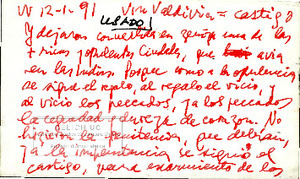 IV 12-1-91 Vin Valdivia = castigo
USADO
Y dejaron convertida en ceniza una de las
+ ricas y opulentas Ciudades, que había
en las Indias. Porque como a la opulencia
se sigue el regalo, al regalo el vicio, y
al vicio los pecados, y a los pecados
la ceguedad y dureza de corazon. No
hicieron la penitencia, que debían,
y a la impenitencia se siguió el
castigo, para escarmiento de los